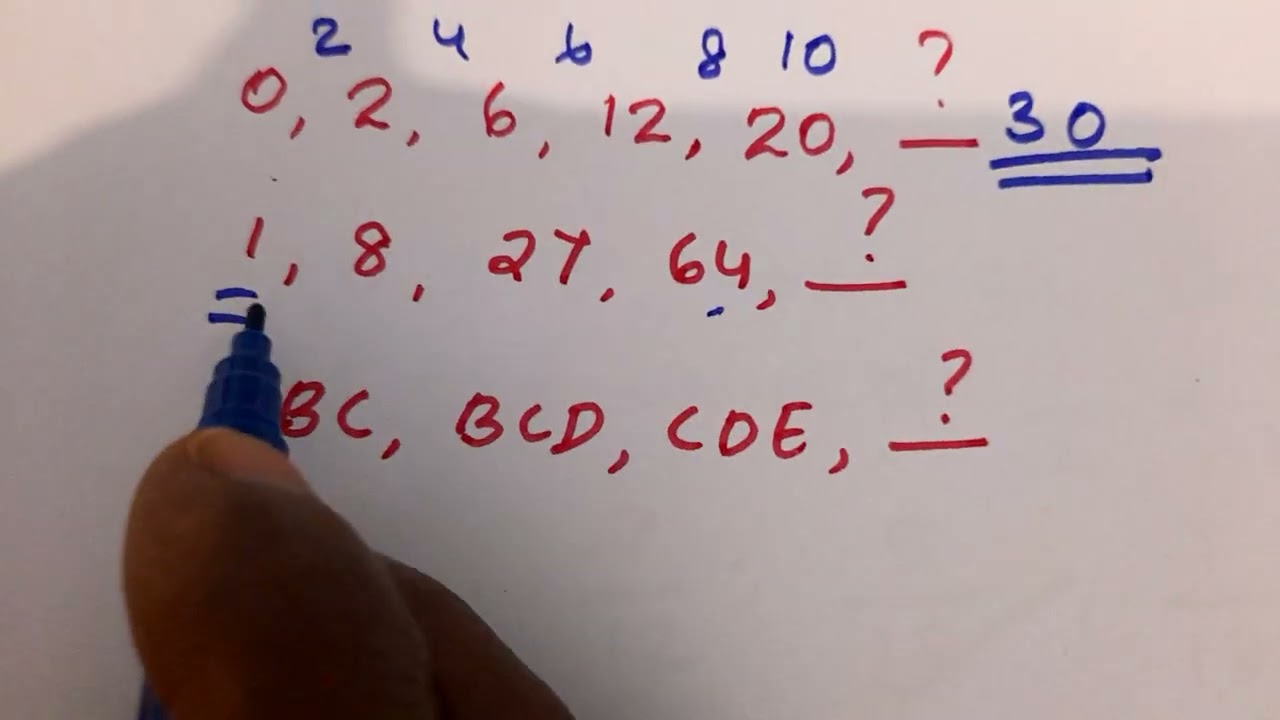 2 4 6 8 10 ?
0, 2, 6, 12, 20, __ 30
?
1, 8, 27, 64, __
?
BC, BCD, CDE, __